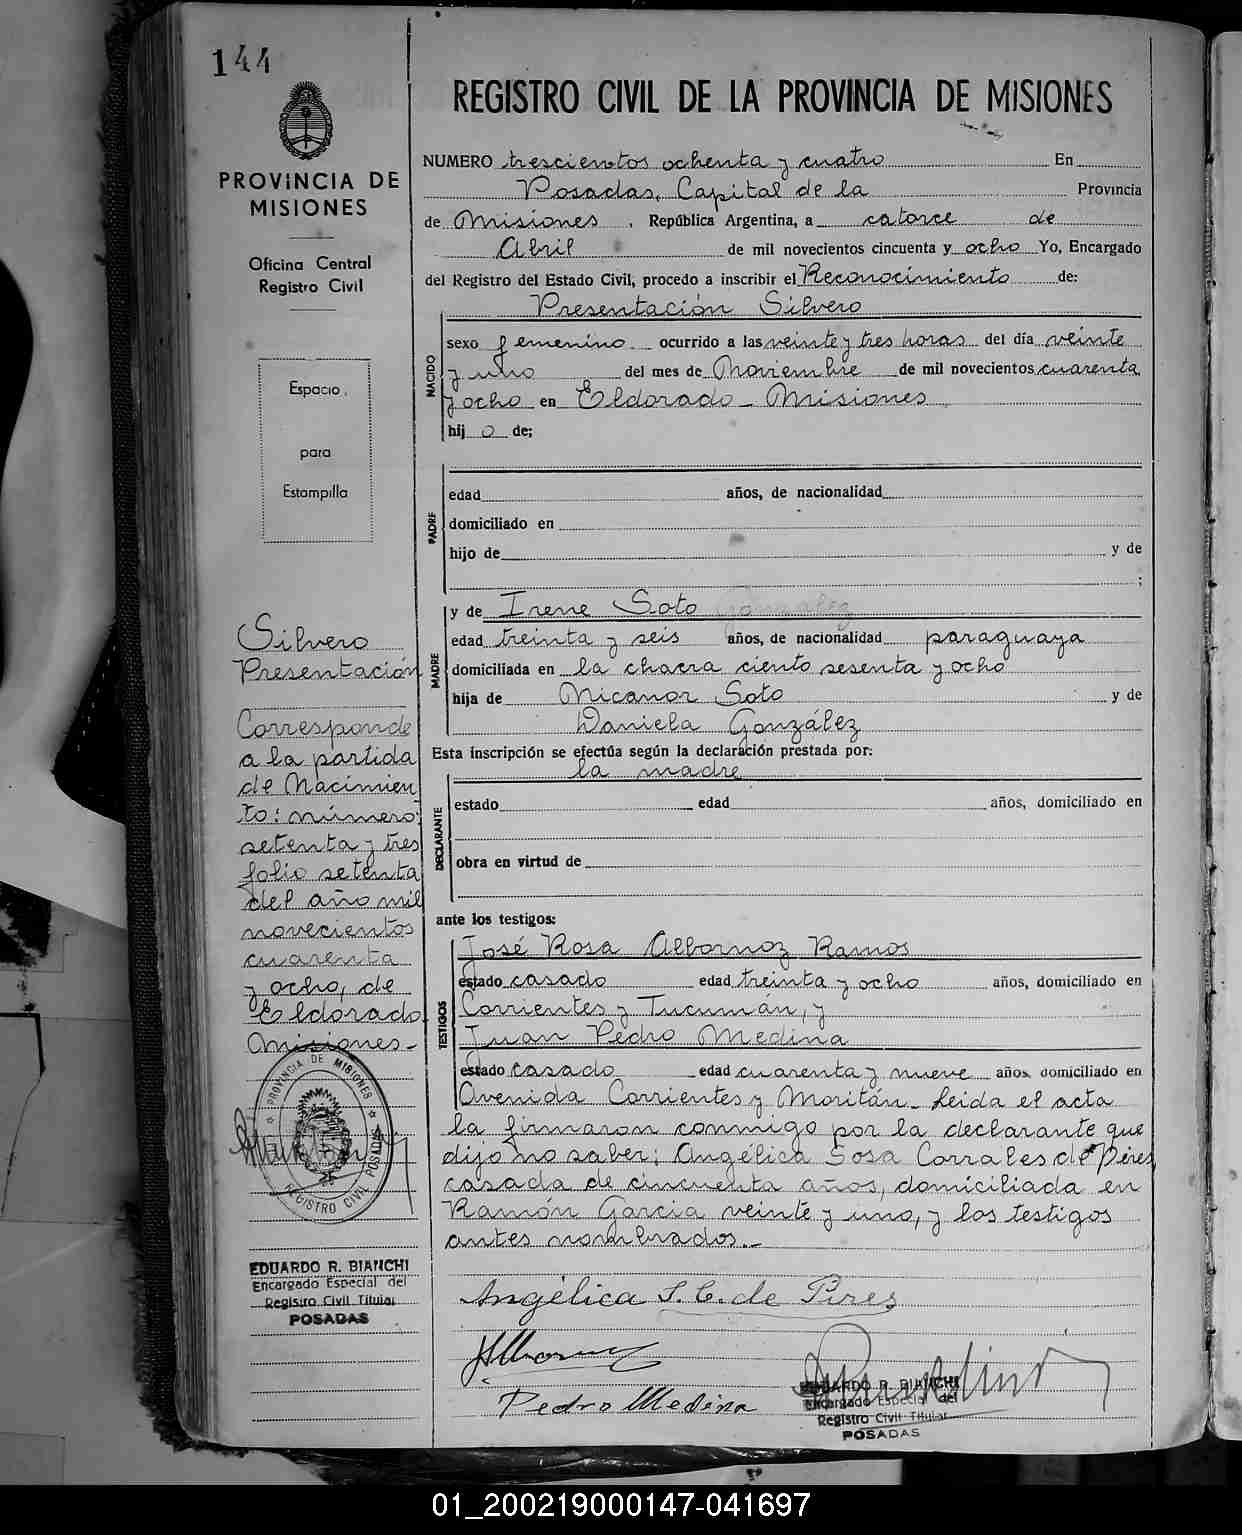 144
REGISTRO CIVIL DE LA PROVINCIA DE MISIONES
PROVINCIA DE
MISIONES
Oficina Central
Registro Civil
Espacio
para
Estampilla
NUMERO trescientos ochenta y cuatro En
Posadas, Capital de la Provincia
de Misiones, República Argentina, a catorce de
Abril de mil novecientos cincuenta y ocho Yo, Encargado
del Registro del Estado Civil, procedo a inscribir el Reconocimiento de:
Presentación Silvero
NACIDO
sexo femenino. ocurrido a las veinte y tres horas del día veinte
y uno del mes de Noviembre de mil novecientos cuarenta
y ocho en Eldorado - Misiones
hij o de:
PADRE
edad años, de nacionalidad
domiciliado en
hijo de y de
;
MADRE
y de Irene Soto González
edad treinta y seis años, de nacionalidad paraguaya
domiciliada en la chacra ciento sesenta y ocho
hija de Nicanor Soto y de
Daniela González
Esta inscripción se efectúa según la declaración prestada por:
la madre
DECLARANTE
estado edad años, domiciliado en
obra en virtud de
ante los testigos:
TESTIGOS
José Rosa Albornoz Ramos
estado casado edad treinta y ocho años, domiciliado en
Corrientes y Tucumán, y
Juan Pedro Medina
estado casado edad cuarenta y nueve años, domiciliado en
Avenida Corrientes y Moritán_ Leida el acta
la firmaron conmigo por la declarante que
dijo no saber; Angélica Sosa Corrales de Pires
casada de cincuenta años, domiciliada en
Ramón Garcia veinte y uno, y los testigos
antes nombrados._
Angélica S. C. de Pires
Pedro Medina
EDUARDO R. BIANCHI
Encargado Especial del
Registro Civil Titular
POSADAS
Silvero
Presentación
Corresponde
a la partida
de Nacimien
to: número:
setenta y tres
folio setenta
del año mil
novecientos
cuarenta
y ocho, de
Eldorado
Misiones_
PROVINCIA DE MISIONES
REGISTRO CIVIL POSADAS
EDUARDO R. BIANCHI
Encargado Especial del
Registro Civil Titular
POSADAS
01_200219000147-041697